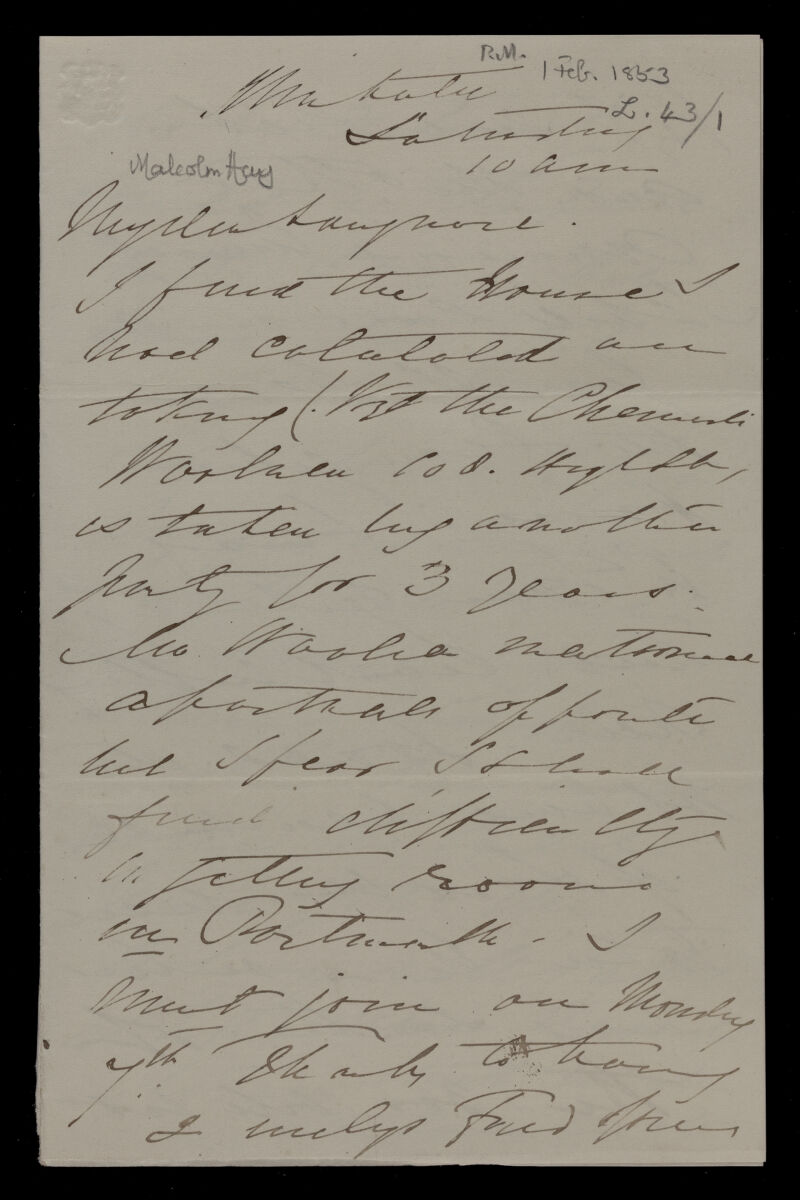 R.M.
1 Feb. 1853
L. 43/1
Saturday
10 am
Malcolm Hay
My dear Longmore.
I find the House I
had calculated on
taking (. Vizt the Chemist
108. High St,
is taken by another
party for 3 years.
Mr.
apartments opposite
but I fear I shall
find difficulty
in getting rooms
in Portsmouth. I
must join on Monday
7th Thanks to
&